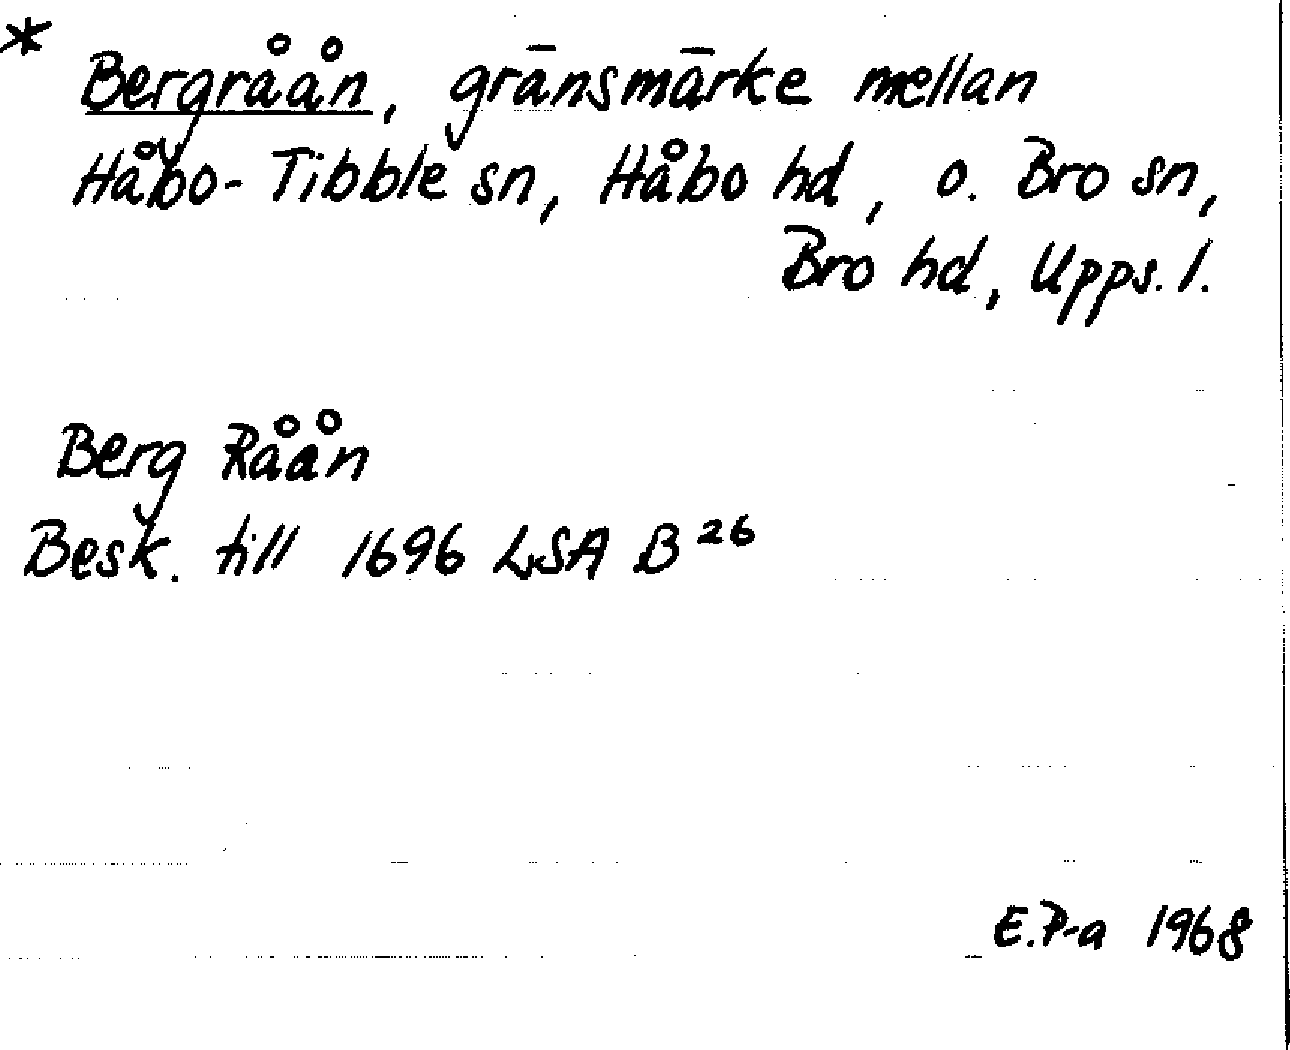 * Bergråån, gränsmärke mellan
Håbo-Tibble sn, Håbo hd, o. Bro sn,
Bro hd, Upps. l.
Berg Råån
Besk. till 1696 LSA B²⁶
E.P-a 1968